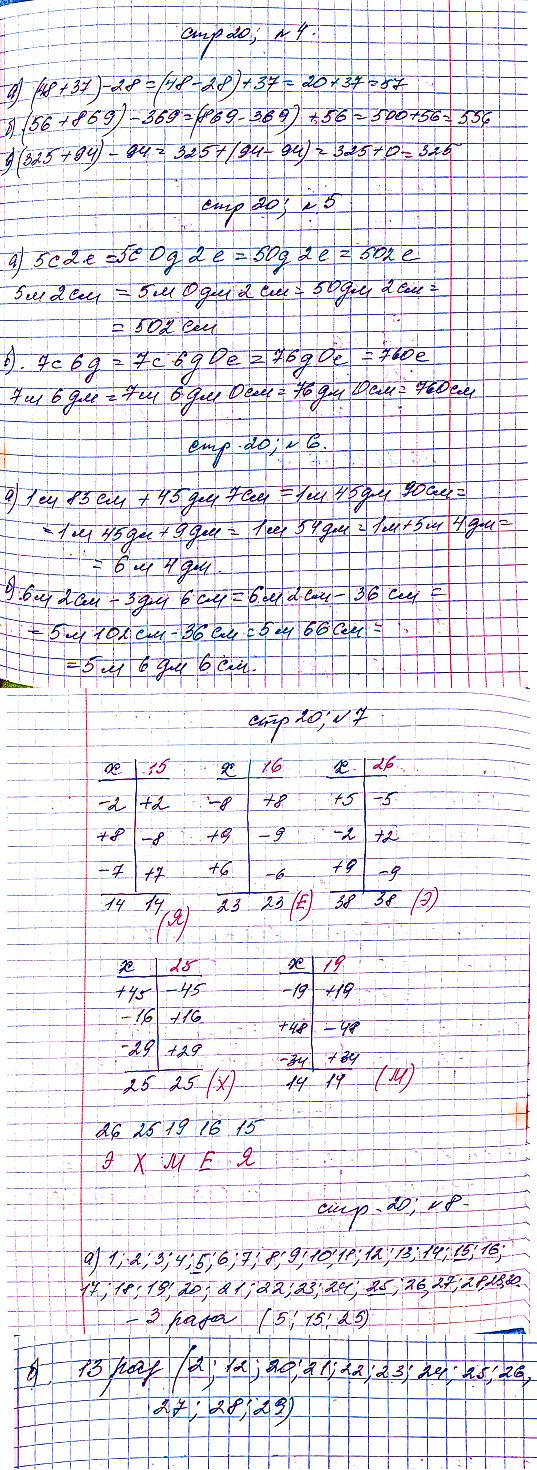 стр 20; №4.
а) (48+37)-28=(48-28)+37=20+37=57
б) (56+869)-369=(869-369)+56=500+56=556
в) (325+94)-94=325+(94-94)=325+0=325
стр 20; №5
а) 5с2е=5с0д2е=50д2е=502е
5м2см=5м0дм2см=50дм2см=
=502см
б). 7с6д=7с6д0е=76д0е=760е
7м6дм=7м6дм0см=76дм0см=760см
стр. 20; №6.
а) 1м 83см+45дм 7см=1м 45дм 90см=
=1м 45дм+9дм=1м 54дм=1м+5м 4дм=
=6м 4дм.
б) 6м 2см-3дм 6см=6м 2см-36см=
=5м 102см-36см=5м 66см=
=5м 6дм 6см.
стр 20; №7
х 15 х 16 х 26
-2 +2 -8 +8 +5 -5
+8 -8 +9 -9 -2 +2
-7 +7 +6 -6 +9 -9
14 14 (Я) 23 23 (Е) 38 38 (Э)
х 25 х 19
+45 -45 -19 +19
-16 +16 +48 -48
-29 +29 -34 +34
25 25 (Х) 14 14 (М)
26 25 19 16 15
Э Х М Е Я
стр. 20; №8.
а) 1; 2; 3; 4; 5; 6; 7; 8; 9; 10; 11; 12; 13; 14; 15; 16;
17; 18; 19; 20; 21; 22; 23; 24; 25; 26, 27; 28, 29, 30.
- 3 раза (5; 15; 25)
б. 13 раз (2; 12; 20; 21; 22; 23; 24; 25; 26,
27; 28; 29)